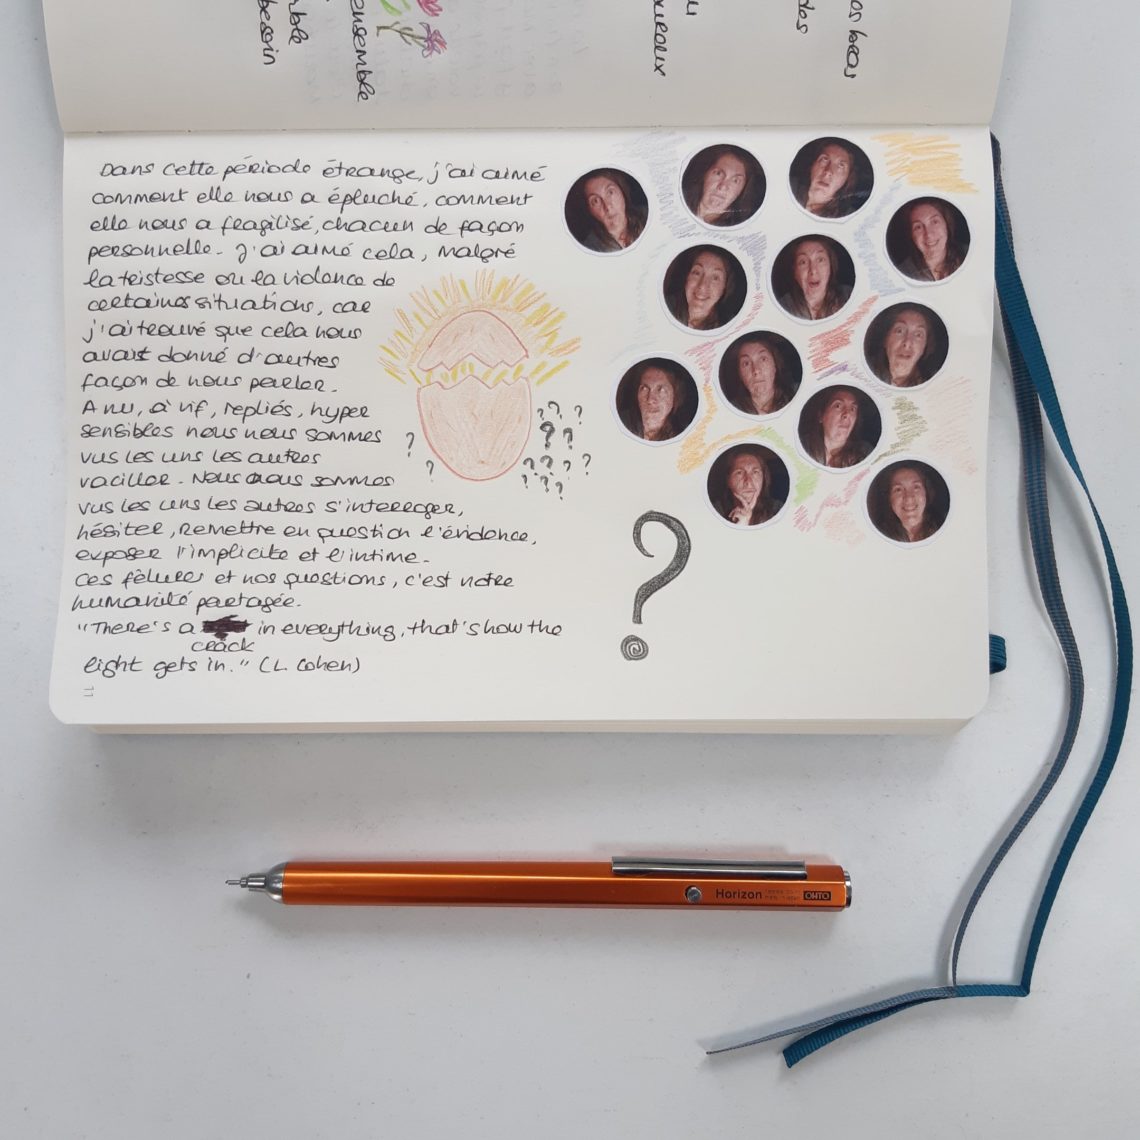 mble
bessin
ensemble
ouraux
u
des
os bras
Dans cette période étrange, j'ai aimé
comment elle nous a épluché, comment
elle nous a fragilisé, chacun de façon
personnelle. J'ai aimé cela, malgré
la tristesse ou la violence de
certaines situations, car
j'ai trouvé que cela nous
avait donné d'autres
façon de nous parler.
A nu, à vif, repliés, hyper
sensibles nous nous sommes
vus les uns les autres
vaciller. Nous nous sommes
vus les uns les autres s'interroger,
hésiter, remettre en question l'évidence,
exposer l'implicite et l'intime.
Ces fêlures et nos questions, c'est notre
humanité partagée.
"There's a in everything, that's how the
crack
light gets in." (L. Cohen)
11
? ? ? ? ? ? ? ? ? ? ? ? ? ? ?
?
Horizon OHTO